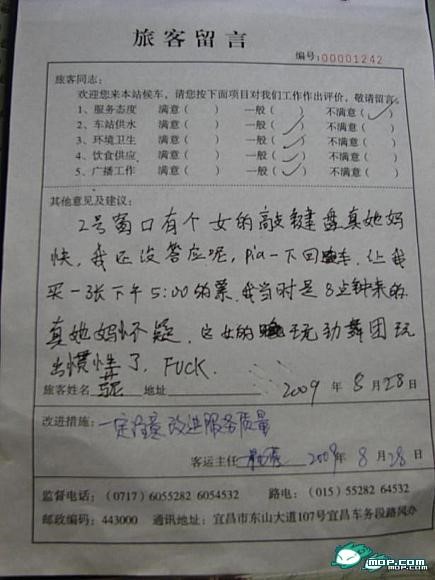 旅客留言
编号:00001242
旅客同志:
欢迎您来本站候车,请您按下面项目对我们工作作出评价,敬请留言。
1、服务态度 满意( ) 一般( ) 不满意(✓)
2、车站供水 满意( ) 一般(✓) 不满意( )
3、环境卫生 满意( ) 一般(✓) 不满意( )
4、饮食供应 满意( ) 一般(✓) 不满意( )
5、广播工作 满意( ) 一般(✓) 不满意( )
其他意见及建议:
2号窗口有个女的敲键盘真她妈
快,我还没答应呢,Pia一下回车,让我
买一张下午5:00的票,我当时是8点钟来的
真她妈怀疑,这女的玩劲舞团玩
出惯性了,FUCK.
旅客姓名 地址 2009 年 8 月 28 日
改进措施: 一定注意改进服务质量
客运主任 2009年 8 月 28 日
监督电话:(0717)6055282 6054532 路电:(015)55282 64532
邮政编码:443000 通讯地址:宜昌市东山大道107号宜昌车务段路风办
mop.com